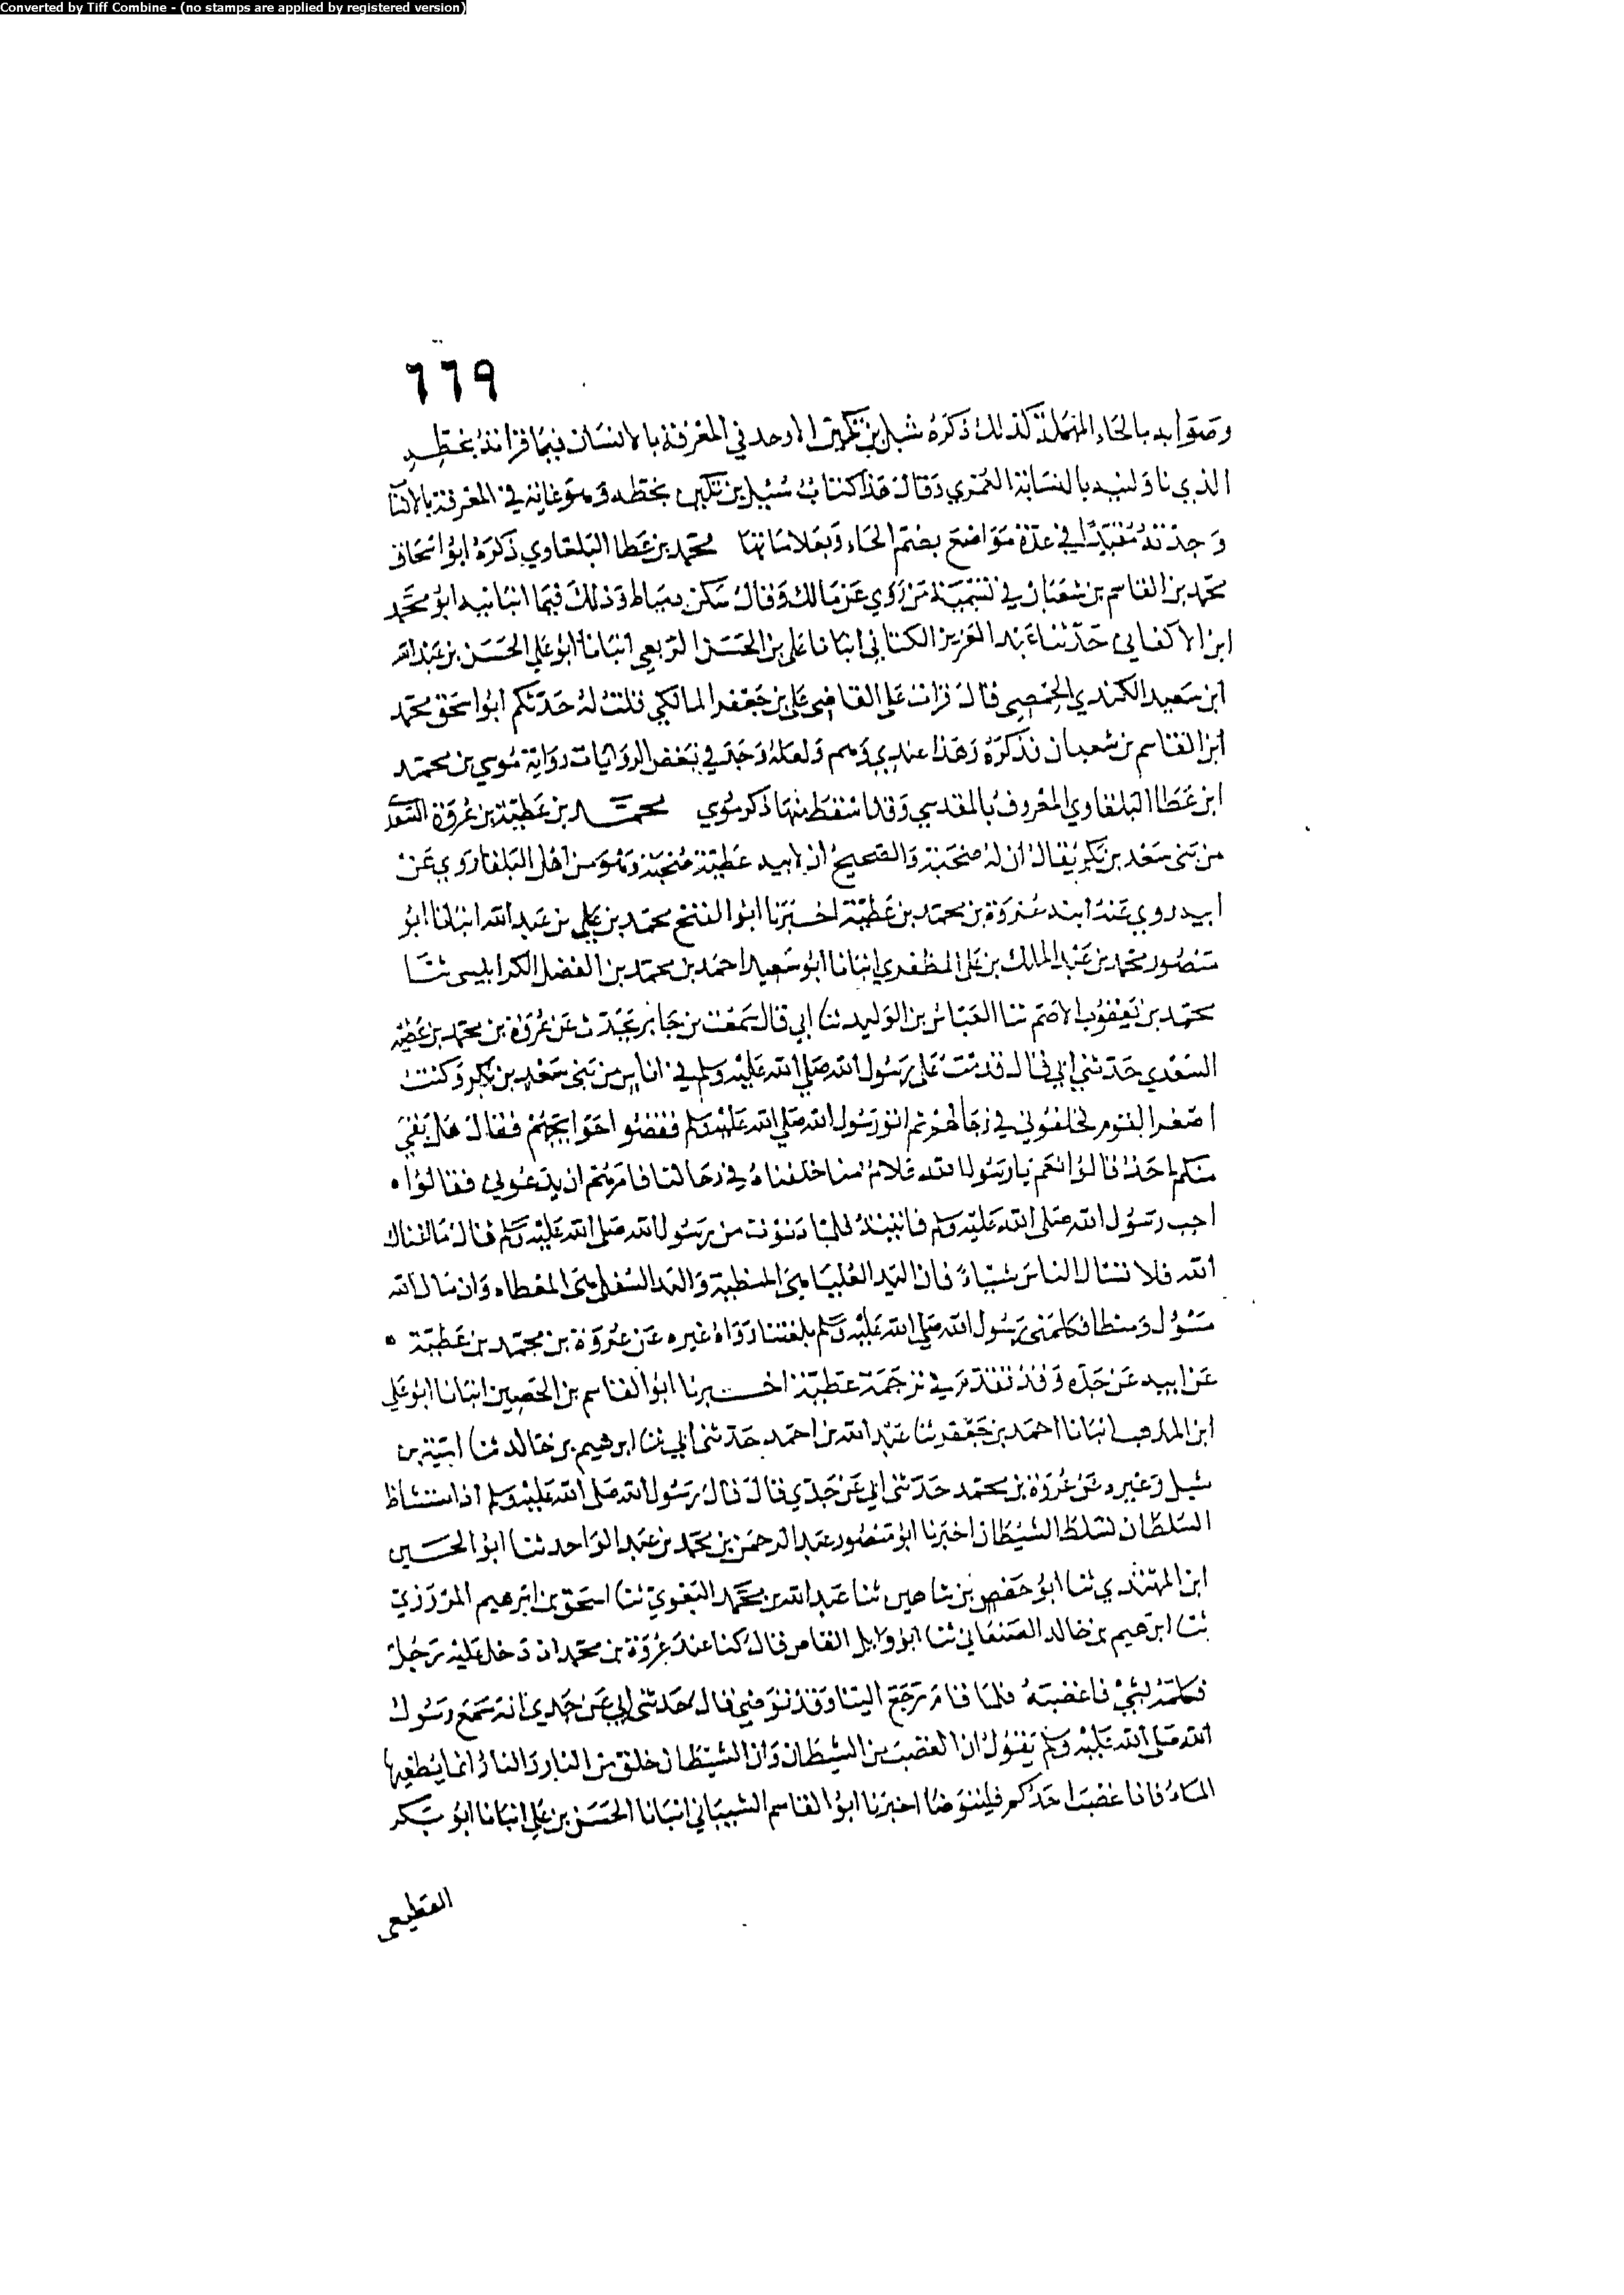 Converted by Tiff Combine - (no stamps are applied by registered version)
٦٦٩
وصوابه بالحاء المهملة كذلك ذكره شبل بن تكين الاوحد في المعرفة بالانساب فيما قراته بخطه
الذي ناولنيه بالنسابة العمري وقال هذا كتاب شبل بن تكين بخطه وهو غاية في المعرفة بالانسا
وجدته مقيدا في عدة مواضع بضم الحاء وبعلاماتها محمد بن عطا البلقاوي ذكره ابو اسحاق
محمد بن القاسم بن شعبان في تسمية من روي عن مالك وقال سكن دمياط وذلك فيما انبانيه ابو محمد
ابن الاكفاني حدثنا عبد العزيز الكتاني انبانا علي بن الحسن الربعي انبانا ابو علي الحسن بن عبد الله
ابن سعيد الكندي الحمصي قال قرات على القاضي علي بن جعفر المالكي قلت له حدثكم ابو اسحق محمد
ابن القاسم بن شعبان فذكره وهذا عندي وهم ولعله وجد في بعض الروايات رواية موسي بن محمد
ابن عطا البلقاوي المعروف بالمقدسي وقد اسقط منها ذكر موسي محمد بن عطية بن عروة السعدي
من بني سعد بن بكر يقال ان له صحبة والصحيح ان لابيه عطية صحبة وهو من اهل البلقا روي عن
ابيه روي عنه ابنه عروة بن محمد بن عطية اخبرنا ابو الفتح محمد بن علي بن عبد الله انبانا ابو
منصور محمد بن عبد الملك بن علي المظفري انبانا ابو سعيد احمد بن محمد بن الفضل الكرابيسي ثنا
محمد بن يعقوب الاصم ثنا العباس بن الوليد ثنا ابي قال سمعت بن جابر يحدث عن عروة بن محمد بن عطية
السعدي حدثني ابي قال قدمت على رسول الله صلي الله عليه وسلم في اناس من بني سعد بن بكر وكنت
اصغر القوم فخلفوني في رحالهم ثم اتوا رسول الله صلي الله عليه وسلم فقضوا حوايجهم فقال هل بقي
منكم احد قالوا نعم يا رسول الله غلام منا خلفناه في رحالنا فامرهم ان يدعوني فقالوا
اجب رسول الله صلى الله عليه وسلم فاتيته فلما دنوت من رسول الله صلى الله عليه وسلم قال ما اغناك
الله فلا تسال الناس شيئا فان اليد العليا هي المنطية واليد السفلى هي المعطاه وان مال الله
مسؤل ومنطا فكلمني رسول الله صلي الله عليه وسلم بلغتنا رواه غيره عن عروة بن محمد بن عطية
عن ابيه عن جده وقد تقدم في ترجمة عطية اخبرنا ابو القاسم بن الحصين انبانا ابو علي
ابن المذهب انبانا احمد بن جعفر ثنا عبد الله بن احمد حدثني ابي ثنا ابرهيم بن خالد ثنا امية بن
شبل وغيره عن عروة بن محمد حدثني ابي عن جدي قال قال رسول الله صلى الله عليه وسلم اذا استشاط
السلطان تسلط الشيطان اخبرنا ابو منصور عبد الرحمن بن محمد بن عبد الواحد ثنا ابو الحسين
ابن المهتدي ثنا ابو حفص بن شاهين ثنا عبد الله بن محمد البغوي ثنا اسحق بن ابرهيم المروزي
ثنا ابرهيم بن خالد الصنعاني ثنا ابو وايل القاص قال كنا عند عروة بن محمد اذ دخل عليه رجل
فكلمه بشي فاغضبه فلما قام رجع الينا وقد توضي قال حدثني ابي عن جدي انه سمع رسول
الله صلى الله عليه وسلم يقول ان الغضب من الشيطان وان الشيطان خلق من النار والنار انما يطفيها
الماء فاذا غضب احدكم فليتوضا اخبرنا ابو القاسم الشيباني انبانا الحسن بن علي انبانا ابو بكر
القطيعي